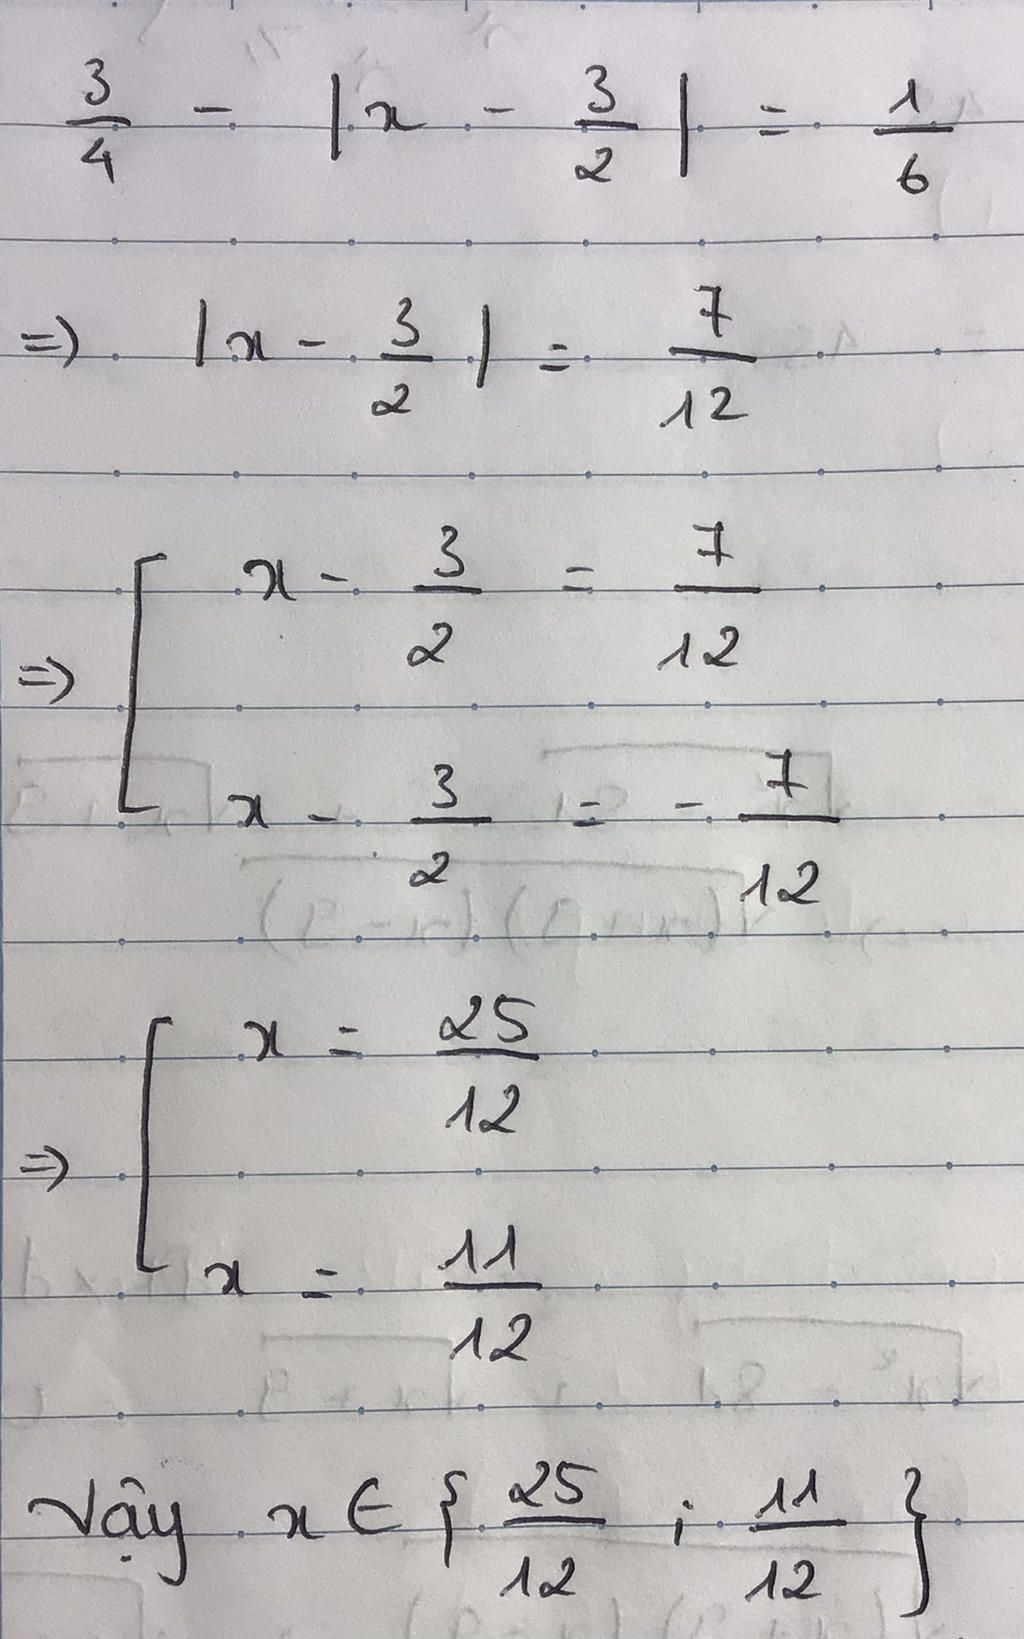 3/4 - |x - 3/2| = 1/6
=> |x - 3/2| = 7/12
=> [ x - 3/2 = 7/12
x - 3/2 = - 7/12
=> [ x = 25/12
x = 11/12
Vậy x ∈ { 25/12 ; 11/12 }